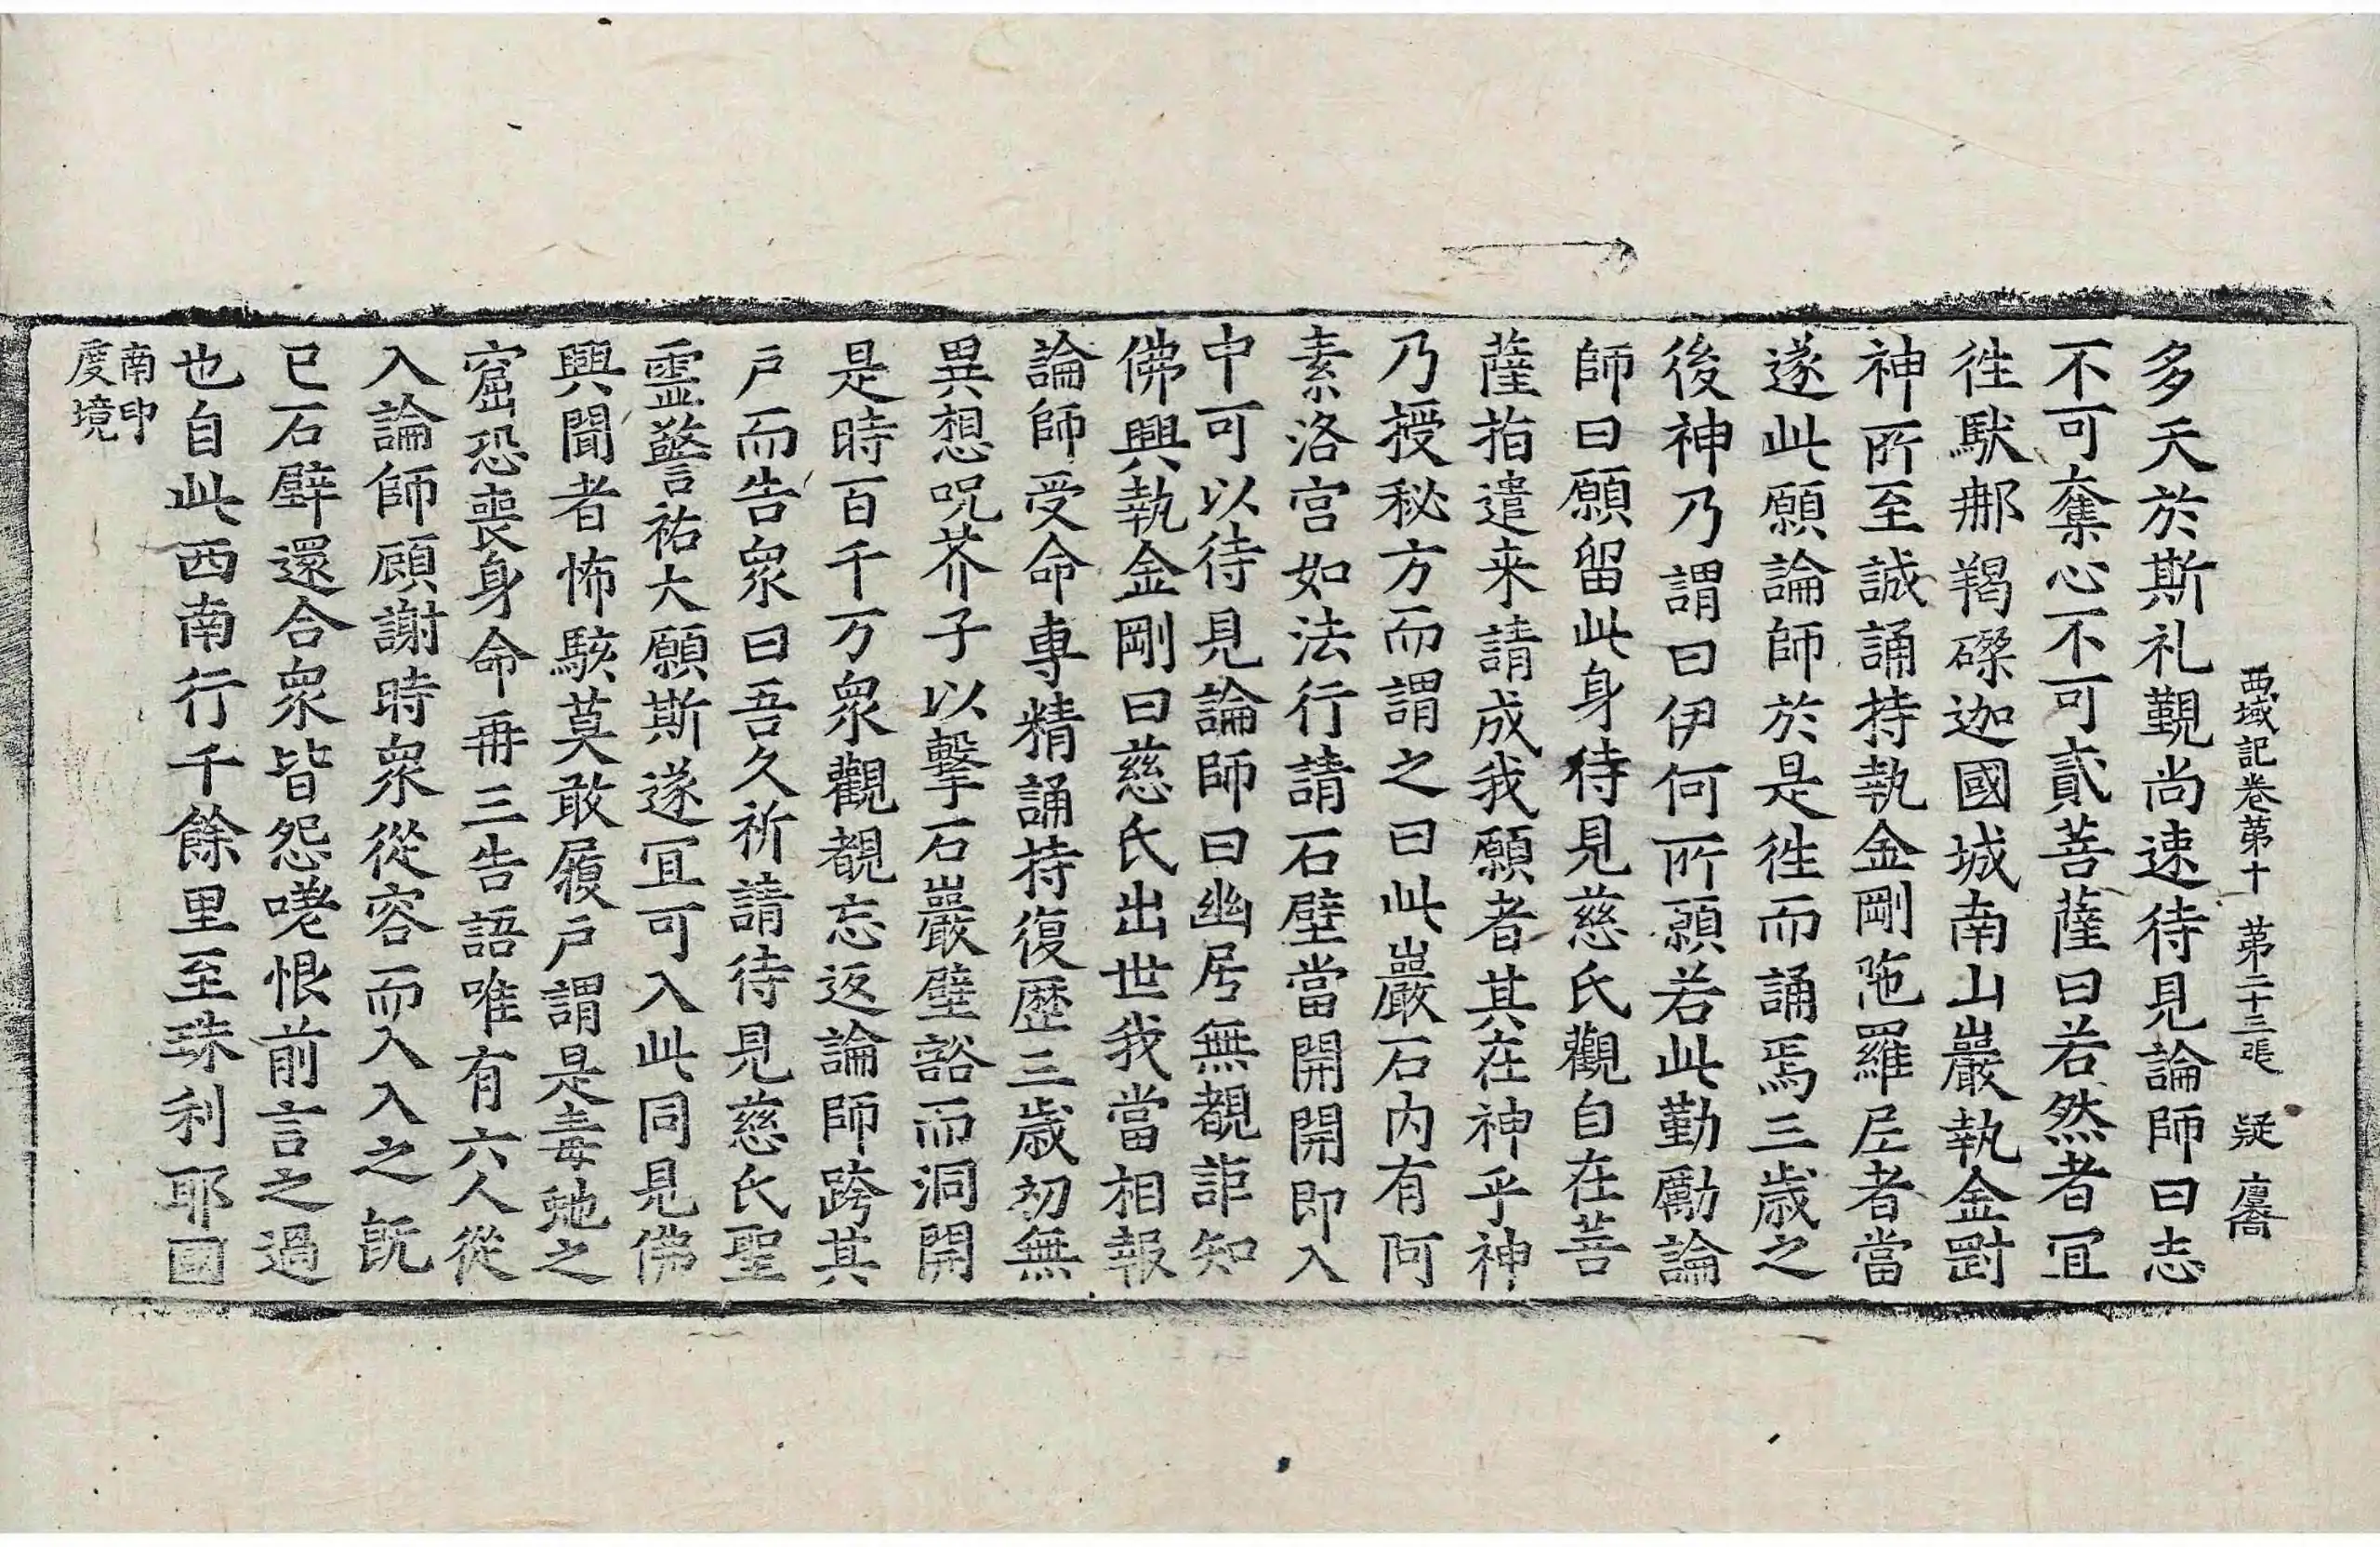 西域記卷苐十 苐二十三張 疑 㐮喬
多天於斯礼覲尚速待見論師曰志
不可奪心不可貳菩薩曰若然者冝
徃䭾郍羯磔迦國城南山巖執金剛
神所至誠誦持執金剛陁羅尼者當
遂此願論師於是徃而誦焉三歲之
後神乃謂曰伊何所願若此勤勵論
師曰願留此身待見慈氏觀自在菩
薩指遣来請成我願者其在神乎神
乃授秘方而謂之曰此巖石内有阿
素洛宫如法行請石壁當開開即入
中可以待見論師曰幽居無覩詎知
佛興執金剛曰慈氏出世我當相報
論師受命專精誦持復歷三歲初無
異想呪芥子以擊石巖壁豁而洞開
是時百千万衆觀覩忘返論師跨其
戶而告衆曰吾久祈請待見慈氏聖
靈警祐大願斯遂冝可入此同見佛
興聞者怖駭莫敢履戶謂是毒虵之
窟恐喪身命再三告語唯有六人從
入論師顧謝時衆從容而入入之既
已石壁還合衆皆怨嗟恨前言之過
也自此西南行千餘里至珠利耶國
南印
度境